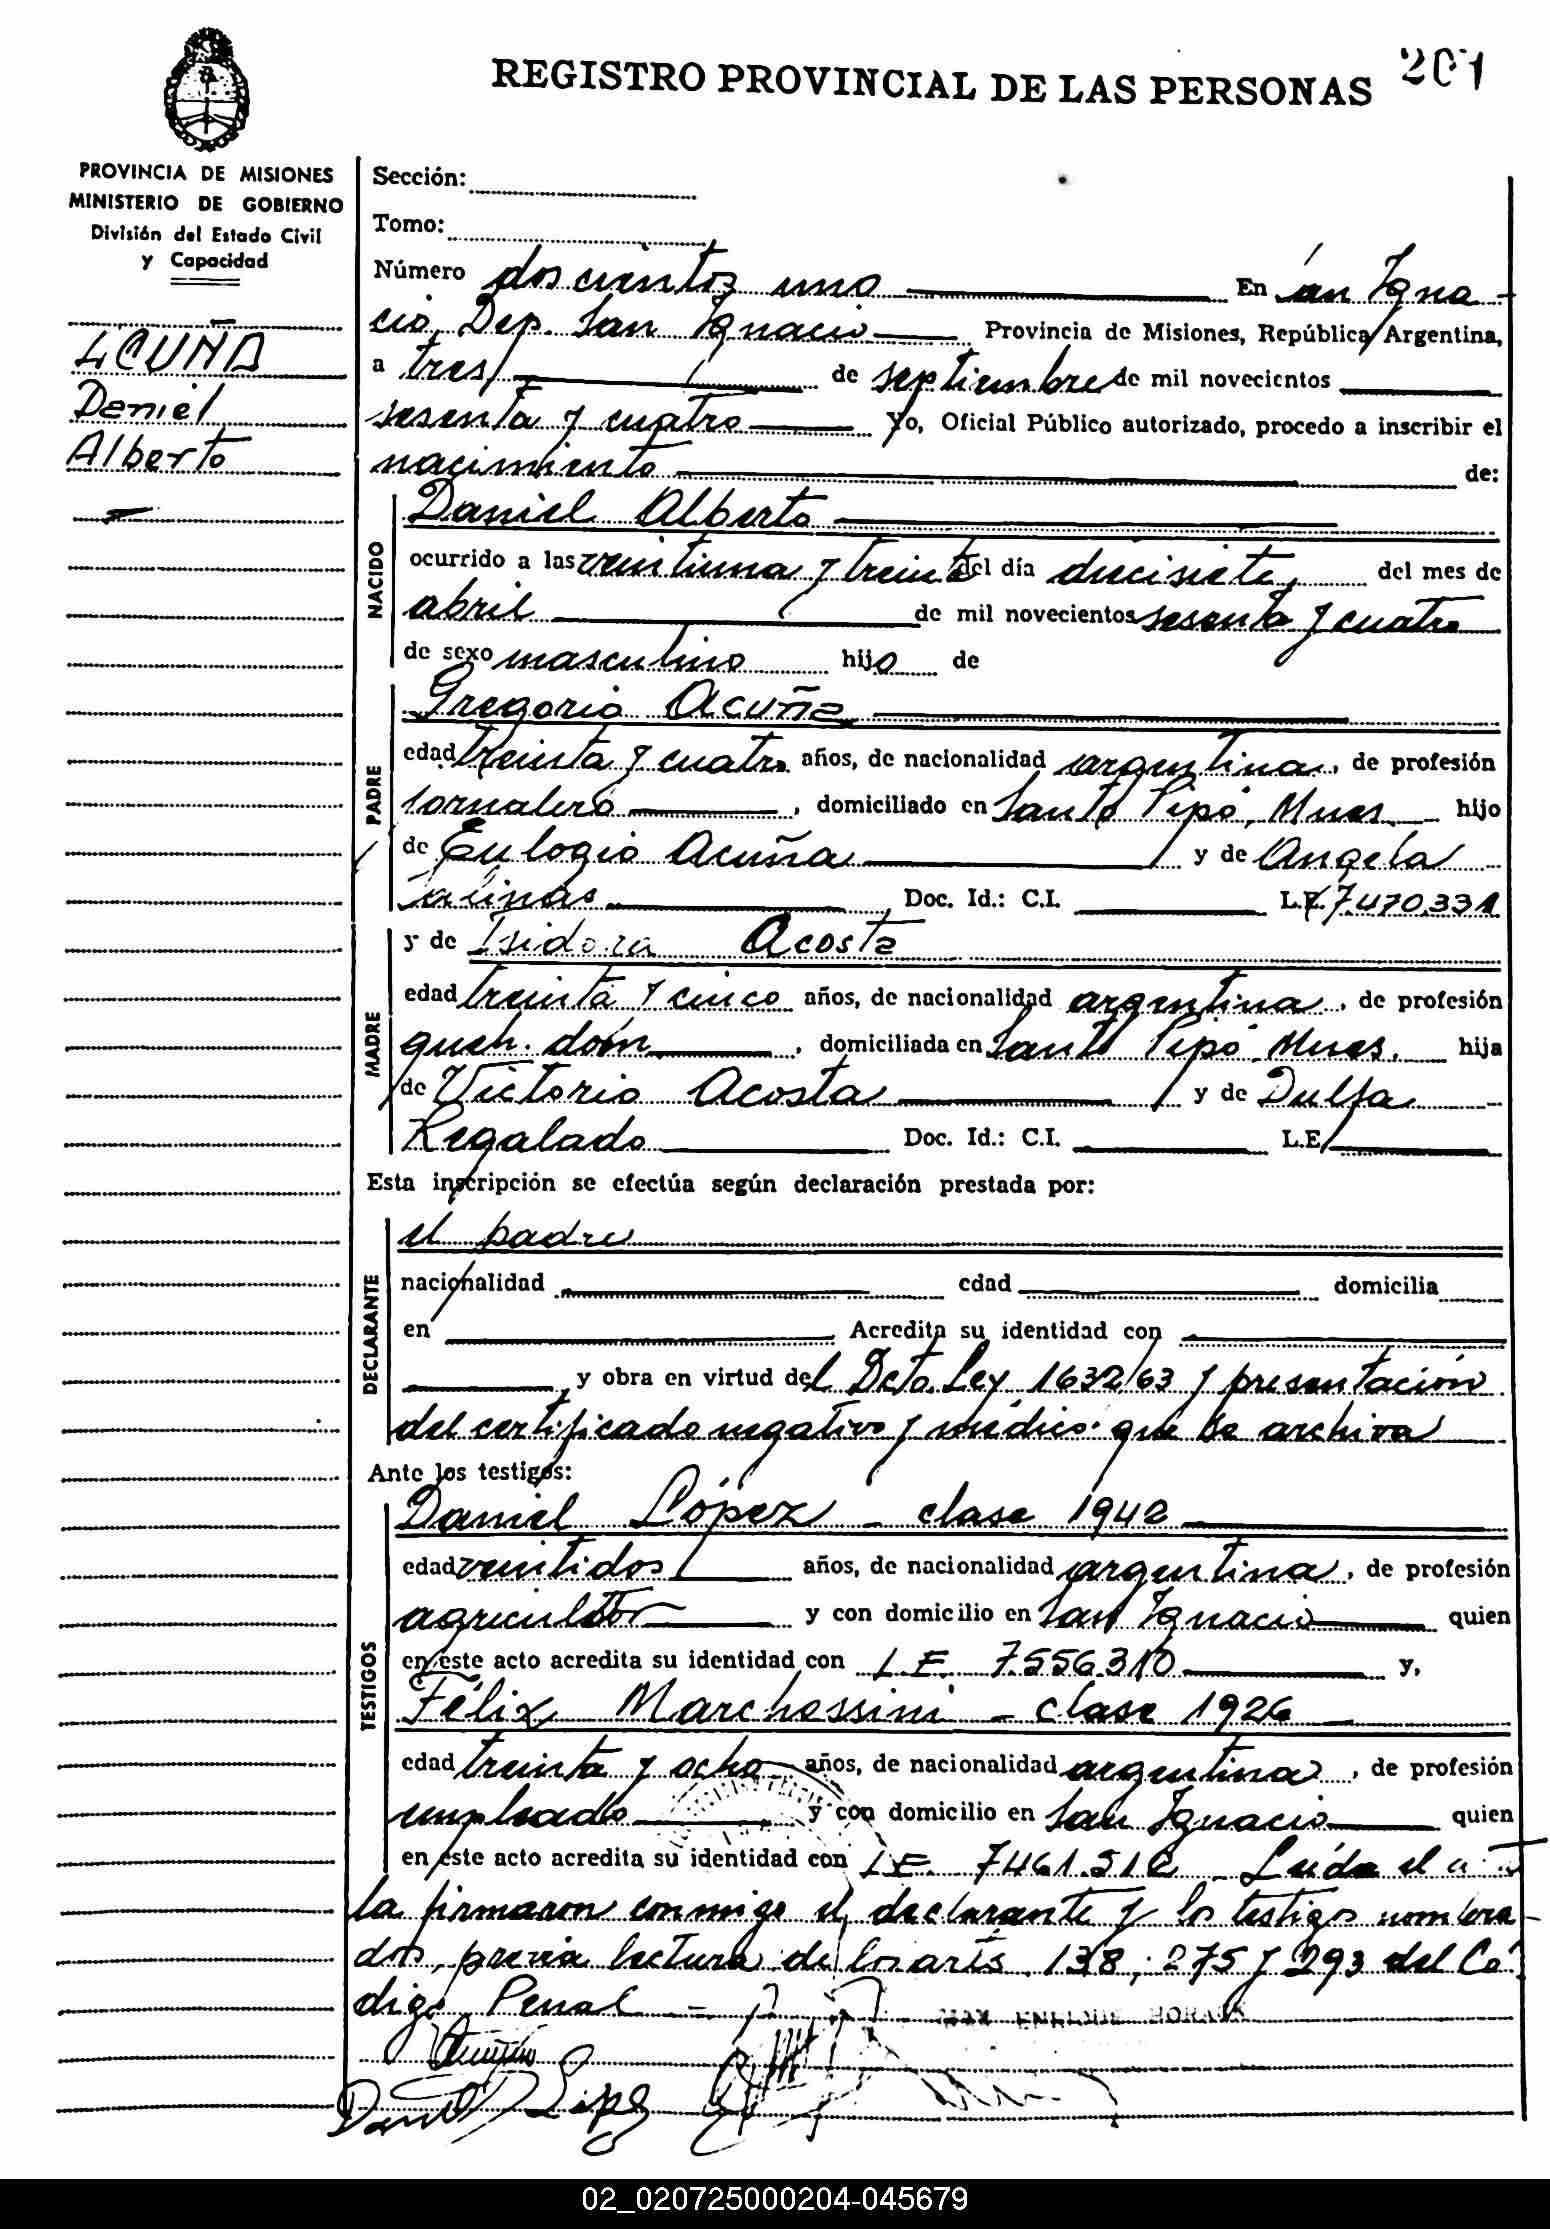 REGISTRO PROVINCIAL DE LAS PERSONAS 201
PROVINCIA DE MISIONES
MINISTERIO DE GOBIERNO
División del Estado Civil
y Capacidad
ACUÑA
Daniel
Alberto
Sección:
Tomo:
Número doscientos uno En San Igna-
cio, Dep. San Ignacio Provincia de Misiones, República Argentina,
a tres, de septiembre de mil novecientos
sesenta y cuatro Yo, Oficial Público autorizado, procedo a inscribir el
nacimiento de:
NACIDO
Daniel Alberto
ocurrido a las veintiuna y treinta del día diecisiete, del mes de
abril de mil novecientos sesenta y cuatro
de sexo masculino hijo de
PADRE
Gregorio Acuña
edad treinta y cuatro años, de nacionalidad argentina, de profesión
jornalero, domiciliado en Santo Pipó, Mnes. hijo
de Eulogio Acuña y de Angela
Salinas Doc. Id.: C.I. L.E. 7.470.331
MADRE
y de Isidora Acosta
edad treinta y cinco años, de nacionalidad argentina, de profesión
queh. dom., domiciliada en Santo Pipó, Mnes. hija
de Victorio Acosta y de Dulfa
Regalado Doc. Id.: C.I. L.E.
Esta inscripción se efectúa según declaración prestada por:
DECLARANTE
el padre
nacionalidad edad domicilia
en Acredita su identidad con
y obra en virtud del Dcto. Ley 1632/63 y presentación
del certificado negativo y médico que se archiva
Ante los testigos:
TESTIGOS
Daniel López - clase 1942
edad veintidos años, de nacionalidad argentina, de profesión
agricultor y con domicilio en San Ignacio quien
en este acto acredita su identidad con L.E. 7.556.310 y,
Félix Marchessini - clase 1926
edad treinta y ocho años, de nacionalidad argentina, de profesión
empleado y con domicilio en San Ignacio quien
en este acto acredita su identidad con L.E. 7461.512 Leída el acta
la firmaron conmigo el declarante y los testigos nombra-
dos, previa lectura de los arts. 138, 275 y 293 del Có-
digo Penal -
MAX ENRIQUE
Daniel Lopez
02_020725000204-045679